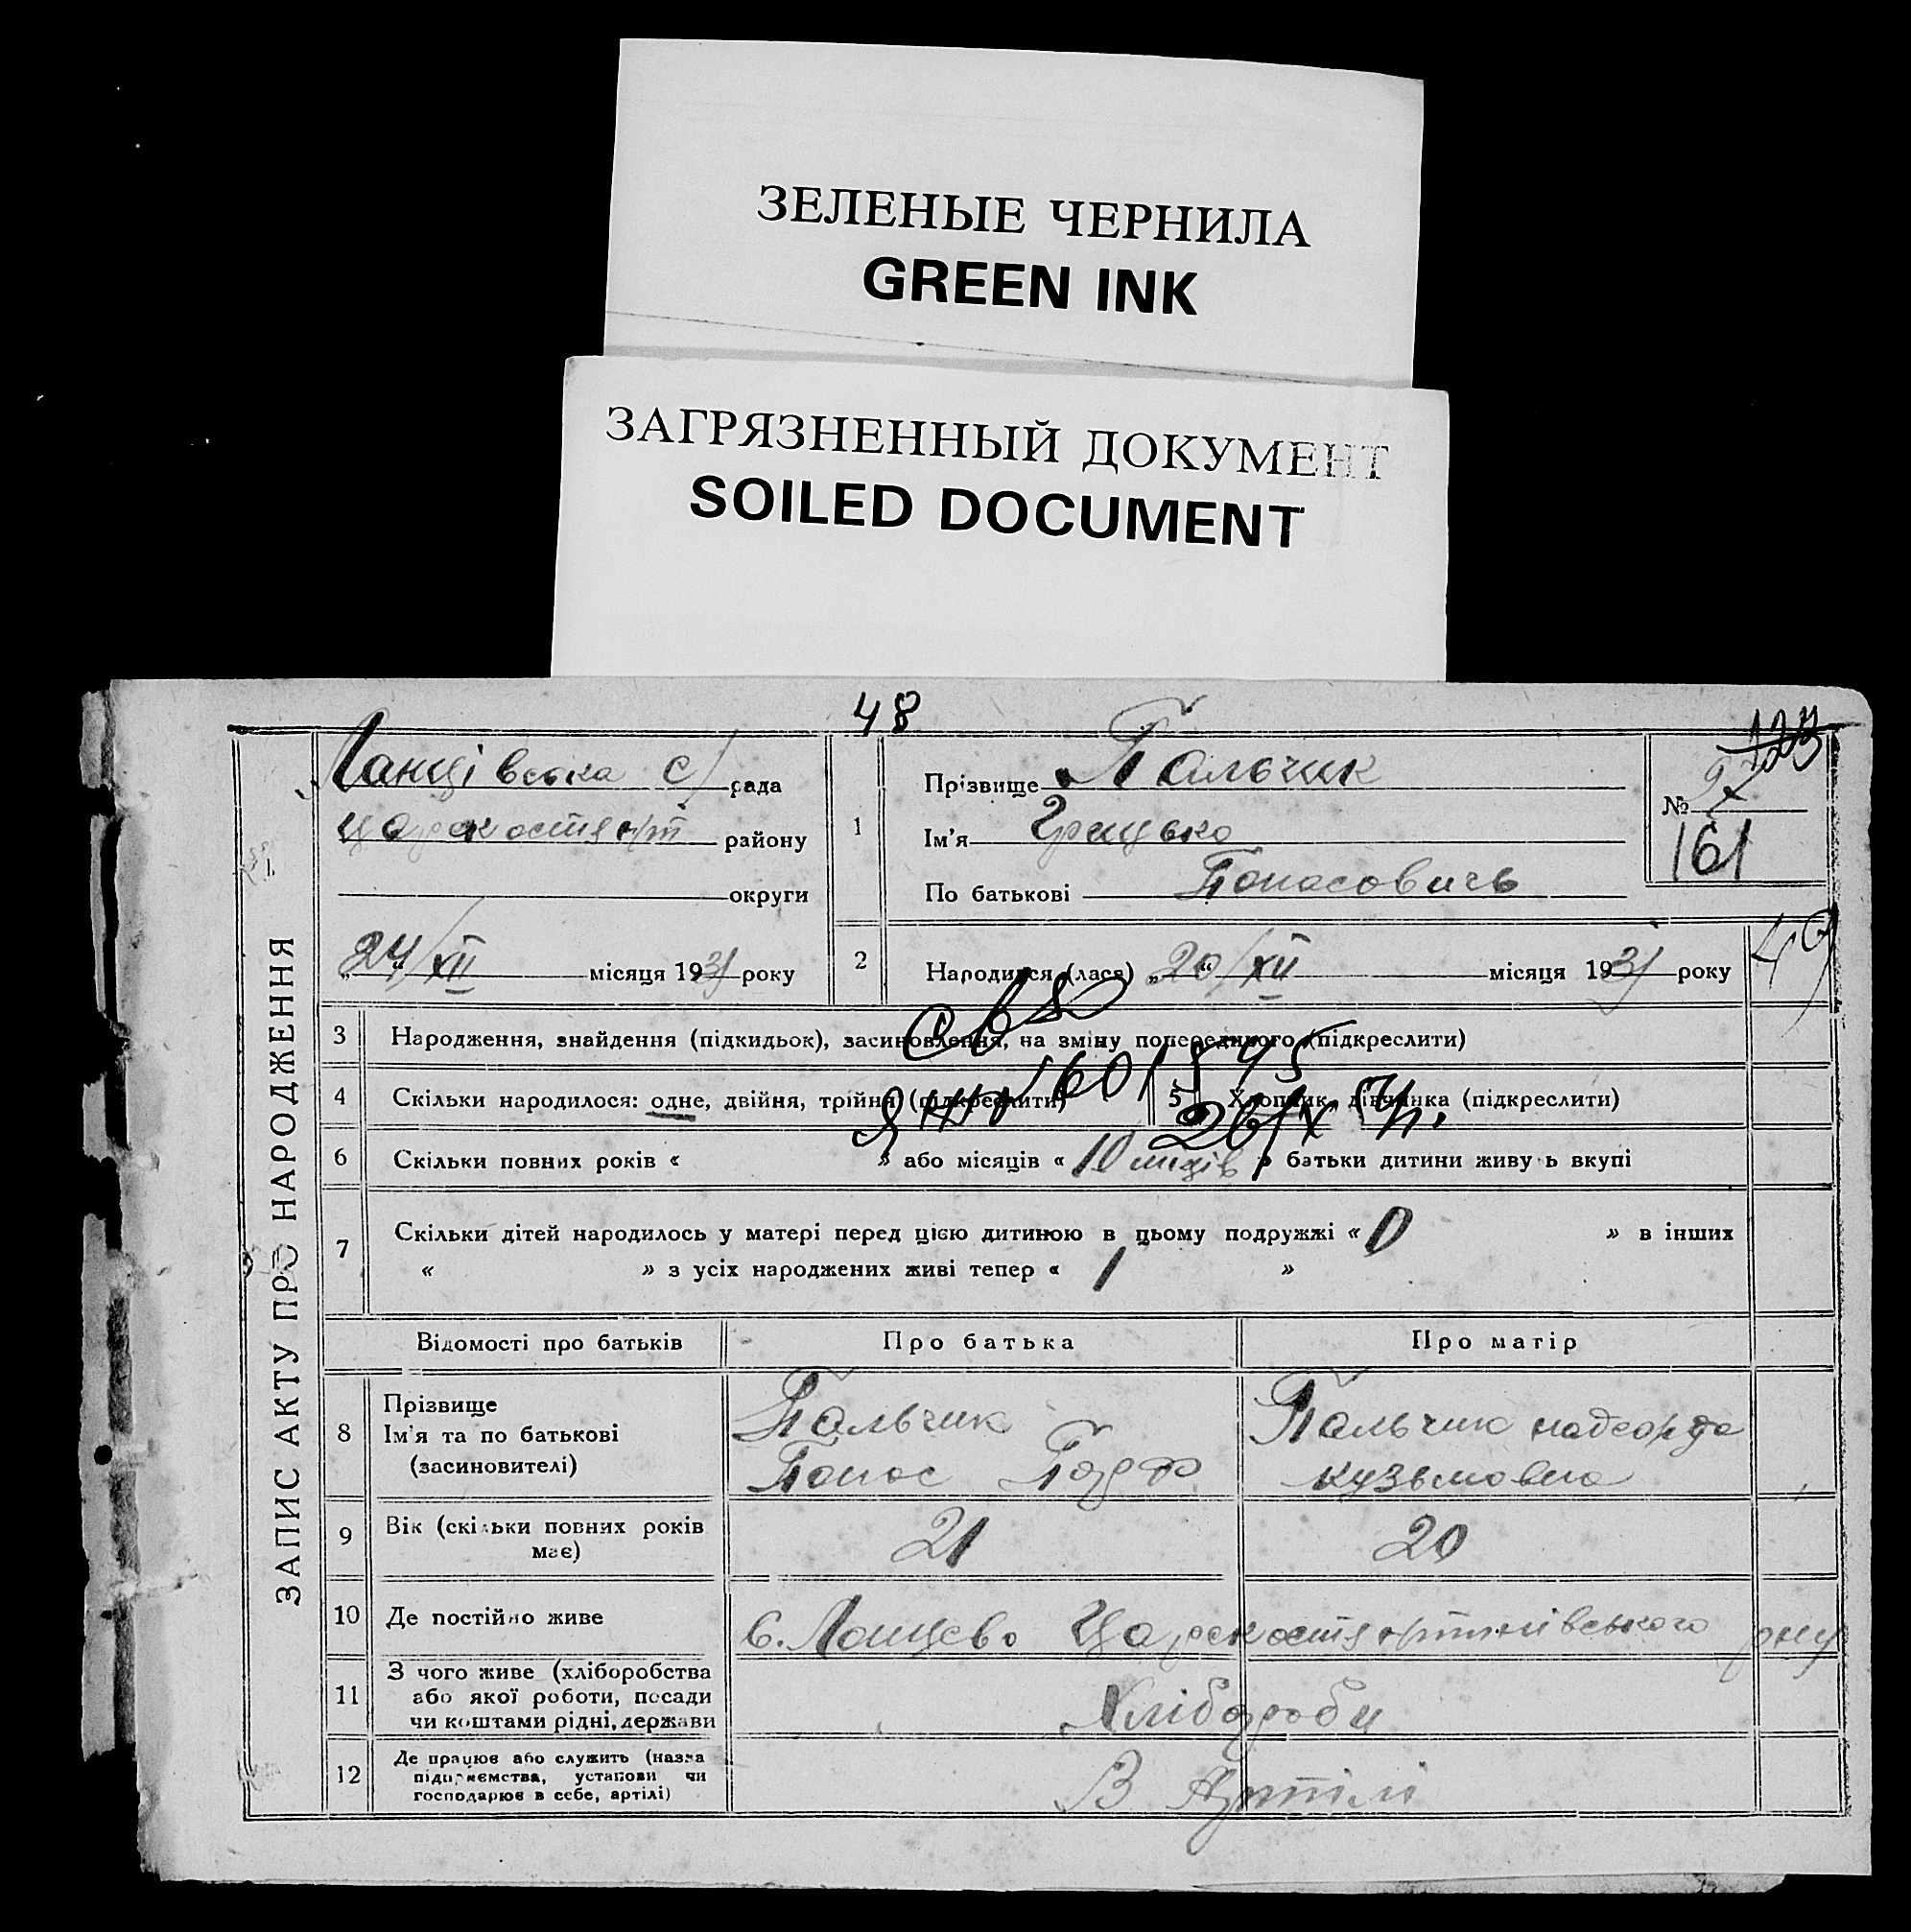 ЗЕЛЕНЫЕ ЧЕРНИЛА
GREEN INK
ЗАГРЯЗНЕННЫЙ ДОКУМЕНТ
SOILED DOCUMENT
48
123
ЗАПИС АКТУ ПРО НАРОДЖЕННЯ
с/рада
району
округи
24/XII місяця 1931 року
1
Прізвище Пальчик
Ім'я Грицько
По батькові Панасович
№
161
2
Народився (лася) „20/XII місяця 1931 року
49
3 Народження, знайдення (підкидьок), засиновлення, на зміну попереднього (підкреслити)
4 Скільки народилося: одне, двійня, трійня (підкреслити)
5 Хлопчик, дівчинка (підкреслити)
6 Скільки повних років « » або місяців « 10 » батьки дитини живуть вкупі
7 Скільки дітей народилось у матері перед цією дитиною в цьому подружжі « 0 » в інших
« » з усіх народжених живі тепер « 1 »
Відомості про батьків
Про батька
Про матір
8 Прізвище
Ім'я та по батькові
(засиновителі)
Пальчик
Панас
Пальчик
Кузьмовна
9 Вік (скільки повних років має)
21
20
10 Де постійно живе
с.
11 З чого живе (хліборобства
або якої роботи, посади
чи коштами рідні, держави
Хлібороби
12 Де працює або служить (назва
підприємства, установи чи
господарює в себе, артілі)
В Артілі